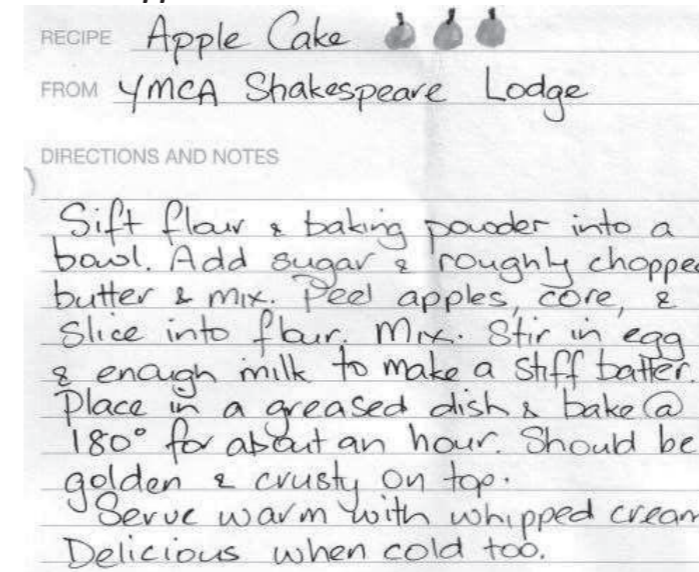 RECIPE Apple Cake
FROM YMCA Shakespeare Lodge
DIRECTIONS AND NOTES
Sift flour & baking powder into a
bowl. Add sugar & roughly choppe
butter & mix. Peel apples, core, &
slice into flour. Mix. Stir in egg
& enough milk to make a stiff batter.
Place in a greased dish & bake @
180° for about an hour. Should be
golden & crusty on top.
Serve warm with whipped cream
Delicious when cold too.